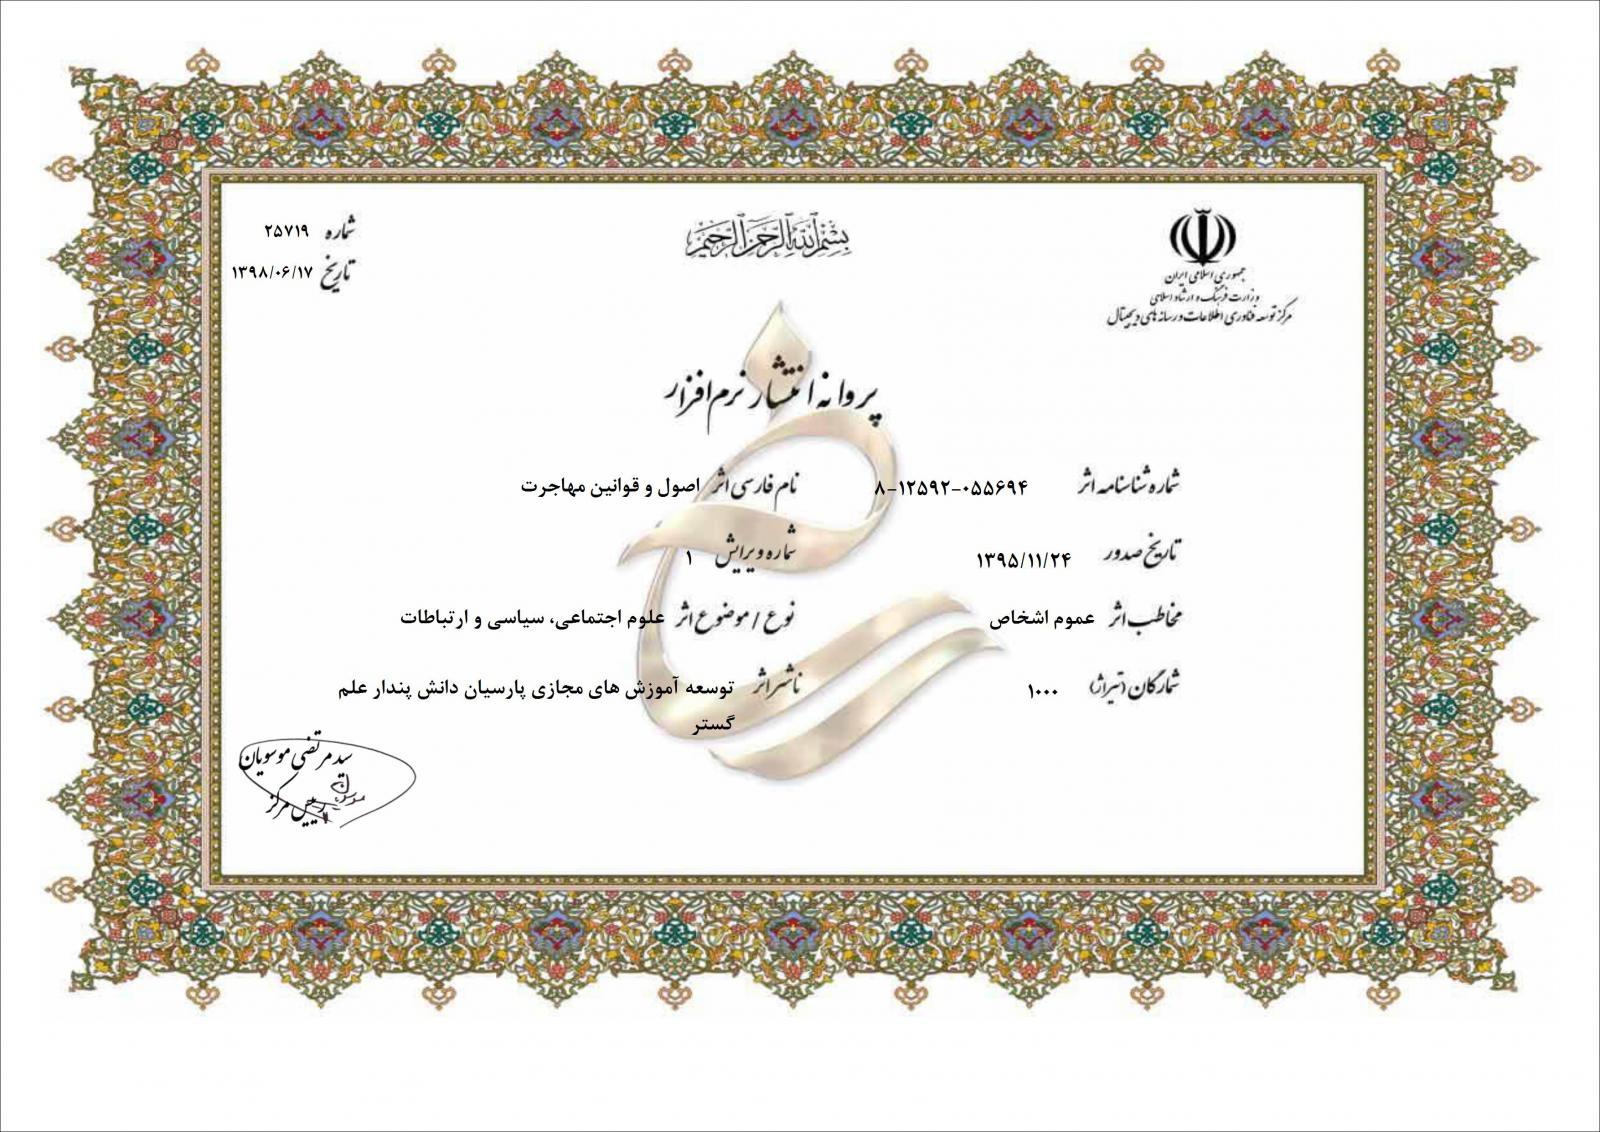 بسم الله الرحمن الرحیم
جمهوری اسلامی ایران
وزارت فرهنگ و ارشاد اسلامی
مرکز توسعه فناوری اطلاعات و رسانه های دیجیتال
شماره ۲۵۷۱۹
تاریخ ۱۳۹۸/۰۶/۱۷
پروانه انتشار نرم افزار
شماره شناسنامه اثر ۸-۱۲۵۹۲-۰۵۵۶۹۴ نام فارسی اثر اصول و قوانین مهاجرت
تاریخ صدور ۱۳۹۵/۱۱/۲۴ شماره ویرایش ۱
مخاطب اثر عموم اشخاص نوع / موضوع اثر علوم اجتماعی، سیاسی و ارتباطات
شمارگان (تیراژ) ۱۰۰۰ ناشر اثر توسعه آموزش های مجازی پارسیان دانش پندار علم
گستر
سید مرتضی موسویان
رییس مرکز